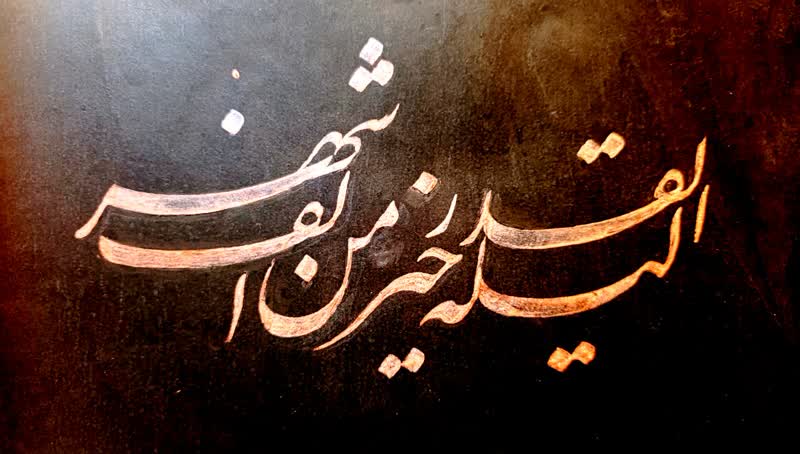 ليله القدر خير من الف شهر